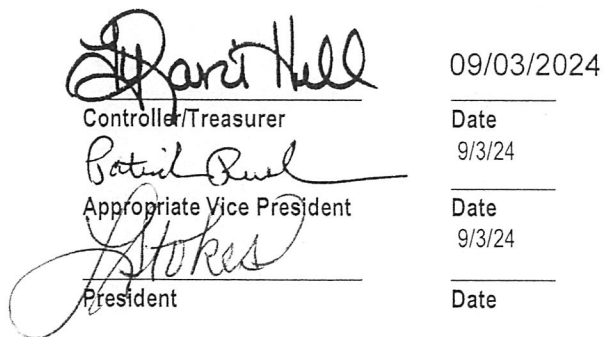 Hill 09/03/2024
Controller/Treasurer Date
Patrick 9/3/24
Appropriate Vice President Date
Stokes 9/3/24
President Date